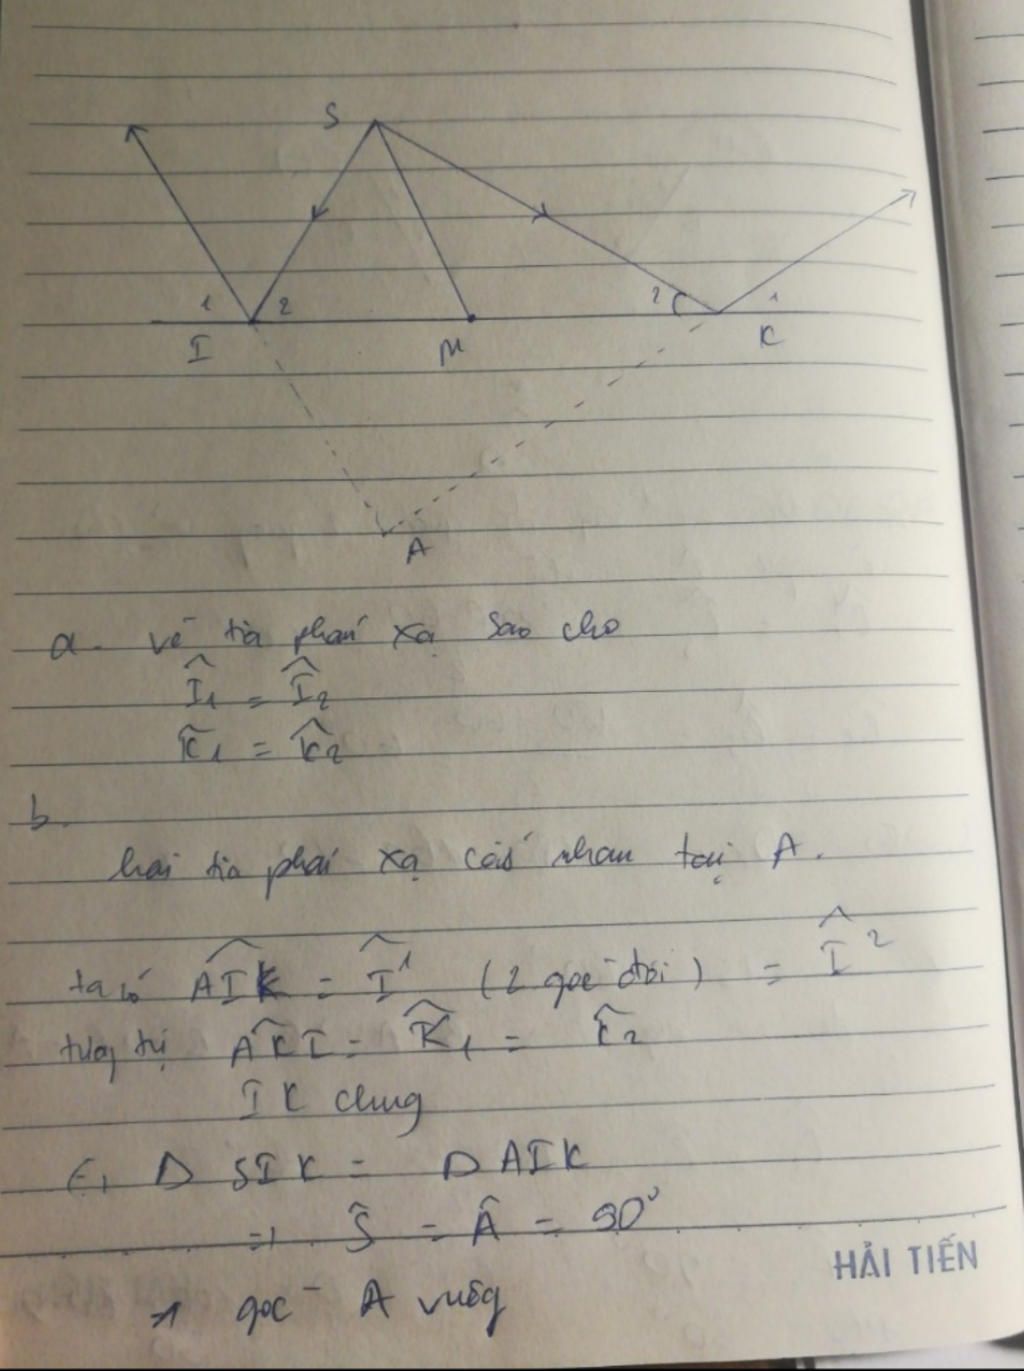 S
1 2 2 1
I M K
A
a. vẽ tia phản xạ sao cho
Î1 = Î2
K̂1 = K̂2
b.
hai tia phản xạ cắt nhau tại A.
ta có AIK = Î1 (2 góc đối) = Î2
tương tự AKI = K̂1 = K̂2
IK chung
Δ SIK = Δ AIK
=> Ŝ = Â = 90°
=> góc A vuông
HẢI TIẾN